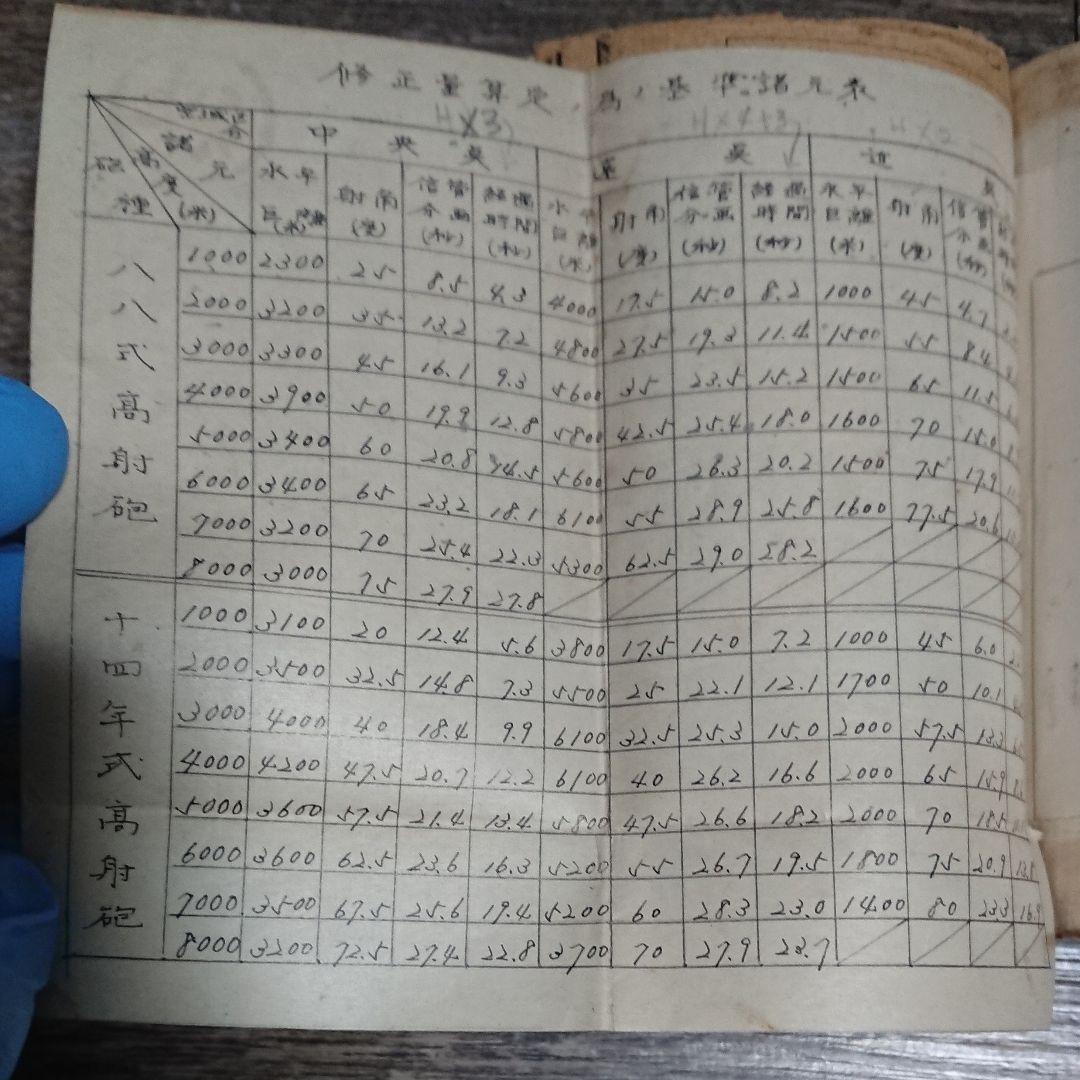 修正量算定ノ為ノ基準諸元表
H×3
諸元 中央点 遠点 近
砲種 高度(米) 水平距離(米) 射角(度) 信管分画(秒) 経過時間(秒) 水平距離(米) 射角(度) 信管分画(秒) 経過時間(秒) 水平距離(米) 射角(度) 信管
八八式高射砲
1000 2300 25 8.5 4.3 4000 17.5 15.0 8.2 1000 45 4.7
2000 3200 35 13.2 7.2 4800 27.5 19.3 11.4 1500 55 8.4
3000 3300 45 16.1 9.3 5600 35 23.5 15.2 1500 65 11.5
4000 3900 50 19.9 12.8 5800 42.5 25.4 18.0 1600 70 15.0
5000 3400 60 20.8 14.5 5600 50 26.3 20.2 1500 75 17.9
6000 3400 65 23.2 18.1 6100 55 28.9 25.8 1600 77.5 20.6
7000 3200 70 25.4 22.3 5300 62.5 29.0 28.2
8000 3000 75 27.9 27.8
十四年式高射砲
1000 3100 20 12.4 5.6 3800 17.5 15.0 7.2 1000 45 6.0
2000 3500 32.5 14.8 7.3 5500 25 22.1 12.1 1700 50 10.1
3000 4000 40 18.4 9.9 6100 32.5 25.3 15.0 2000 57.5 13.3
4000 4200 47.5 20.7 12.2 6100 40 26.2 16.6 2000 65 15.9
5000 3600 57.5 21.4 13.4 5800 47.5 26.6 18.2 2000 70 18.5
6000 3600 62.5 23.6 16.3 5200 55 26.7 19.5 1800 75 20.9 13.5
7000 3500 67.5 25.6 19.4 5200 60 28.3 23.0 1400 80 23.3 16.9
8000 3200 72.5 27.4 22.8 3700 70 27.9 23.7